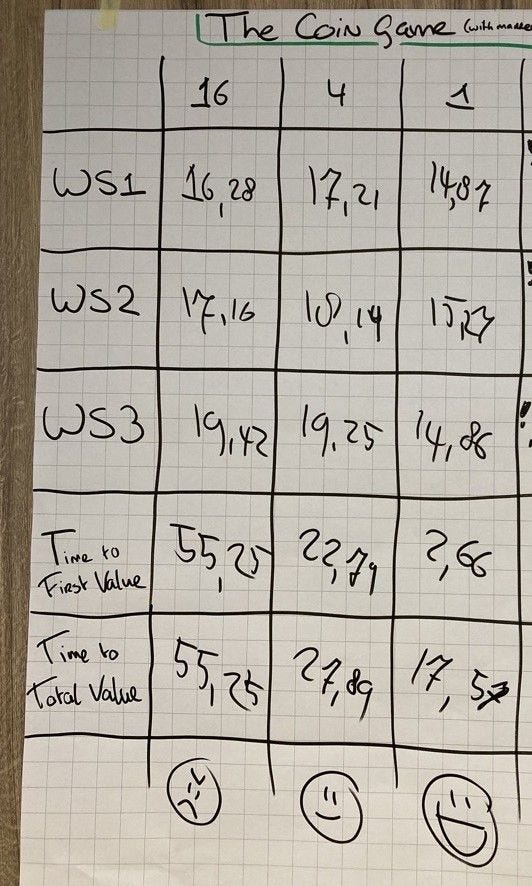 The Coin Game
16 4 1
WS1 16,28 17,21 14,87
WS2 17,16 18,14
WS3 19,42 19,25 14,86
Time to
First Value 55,25 22,79 2,66
Time to
Total Value 55,25 27,89 17,57